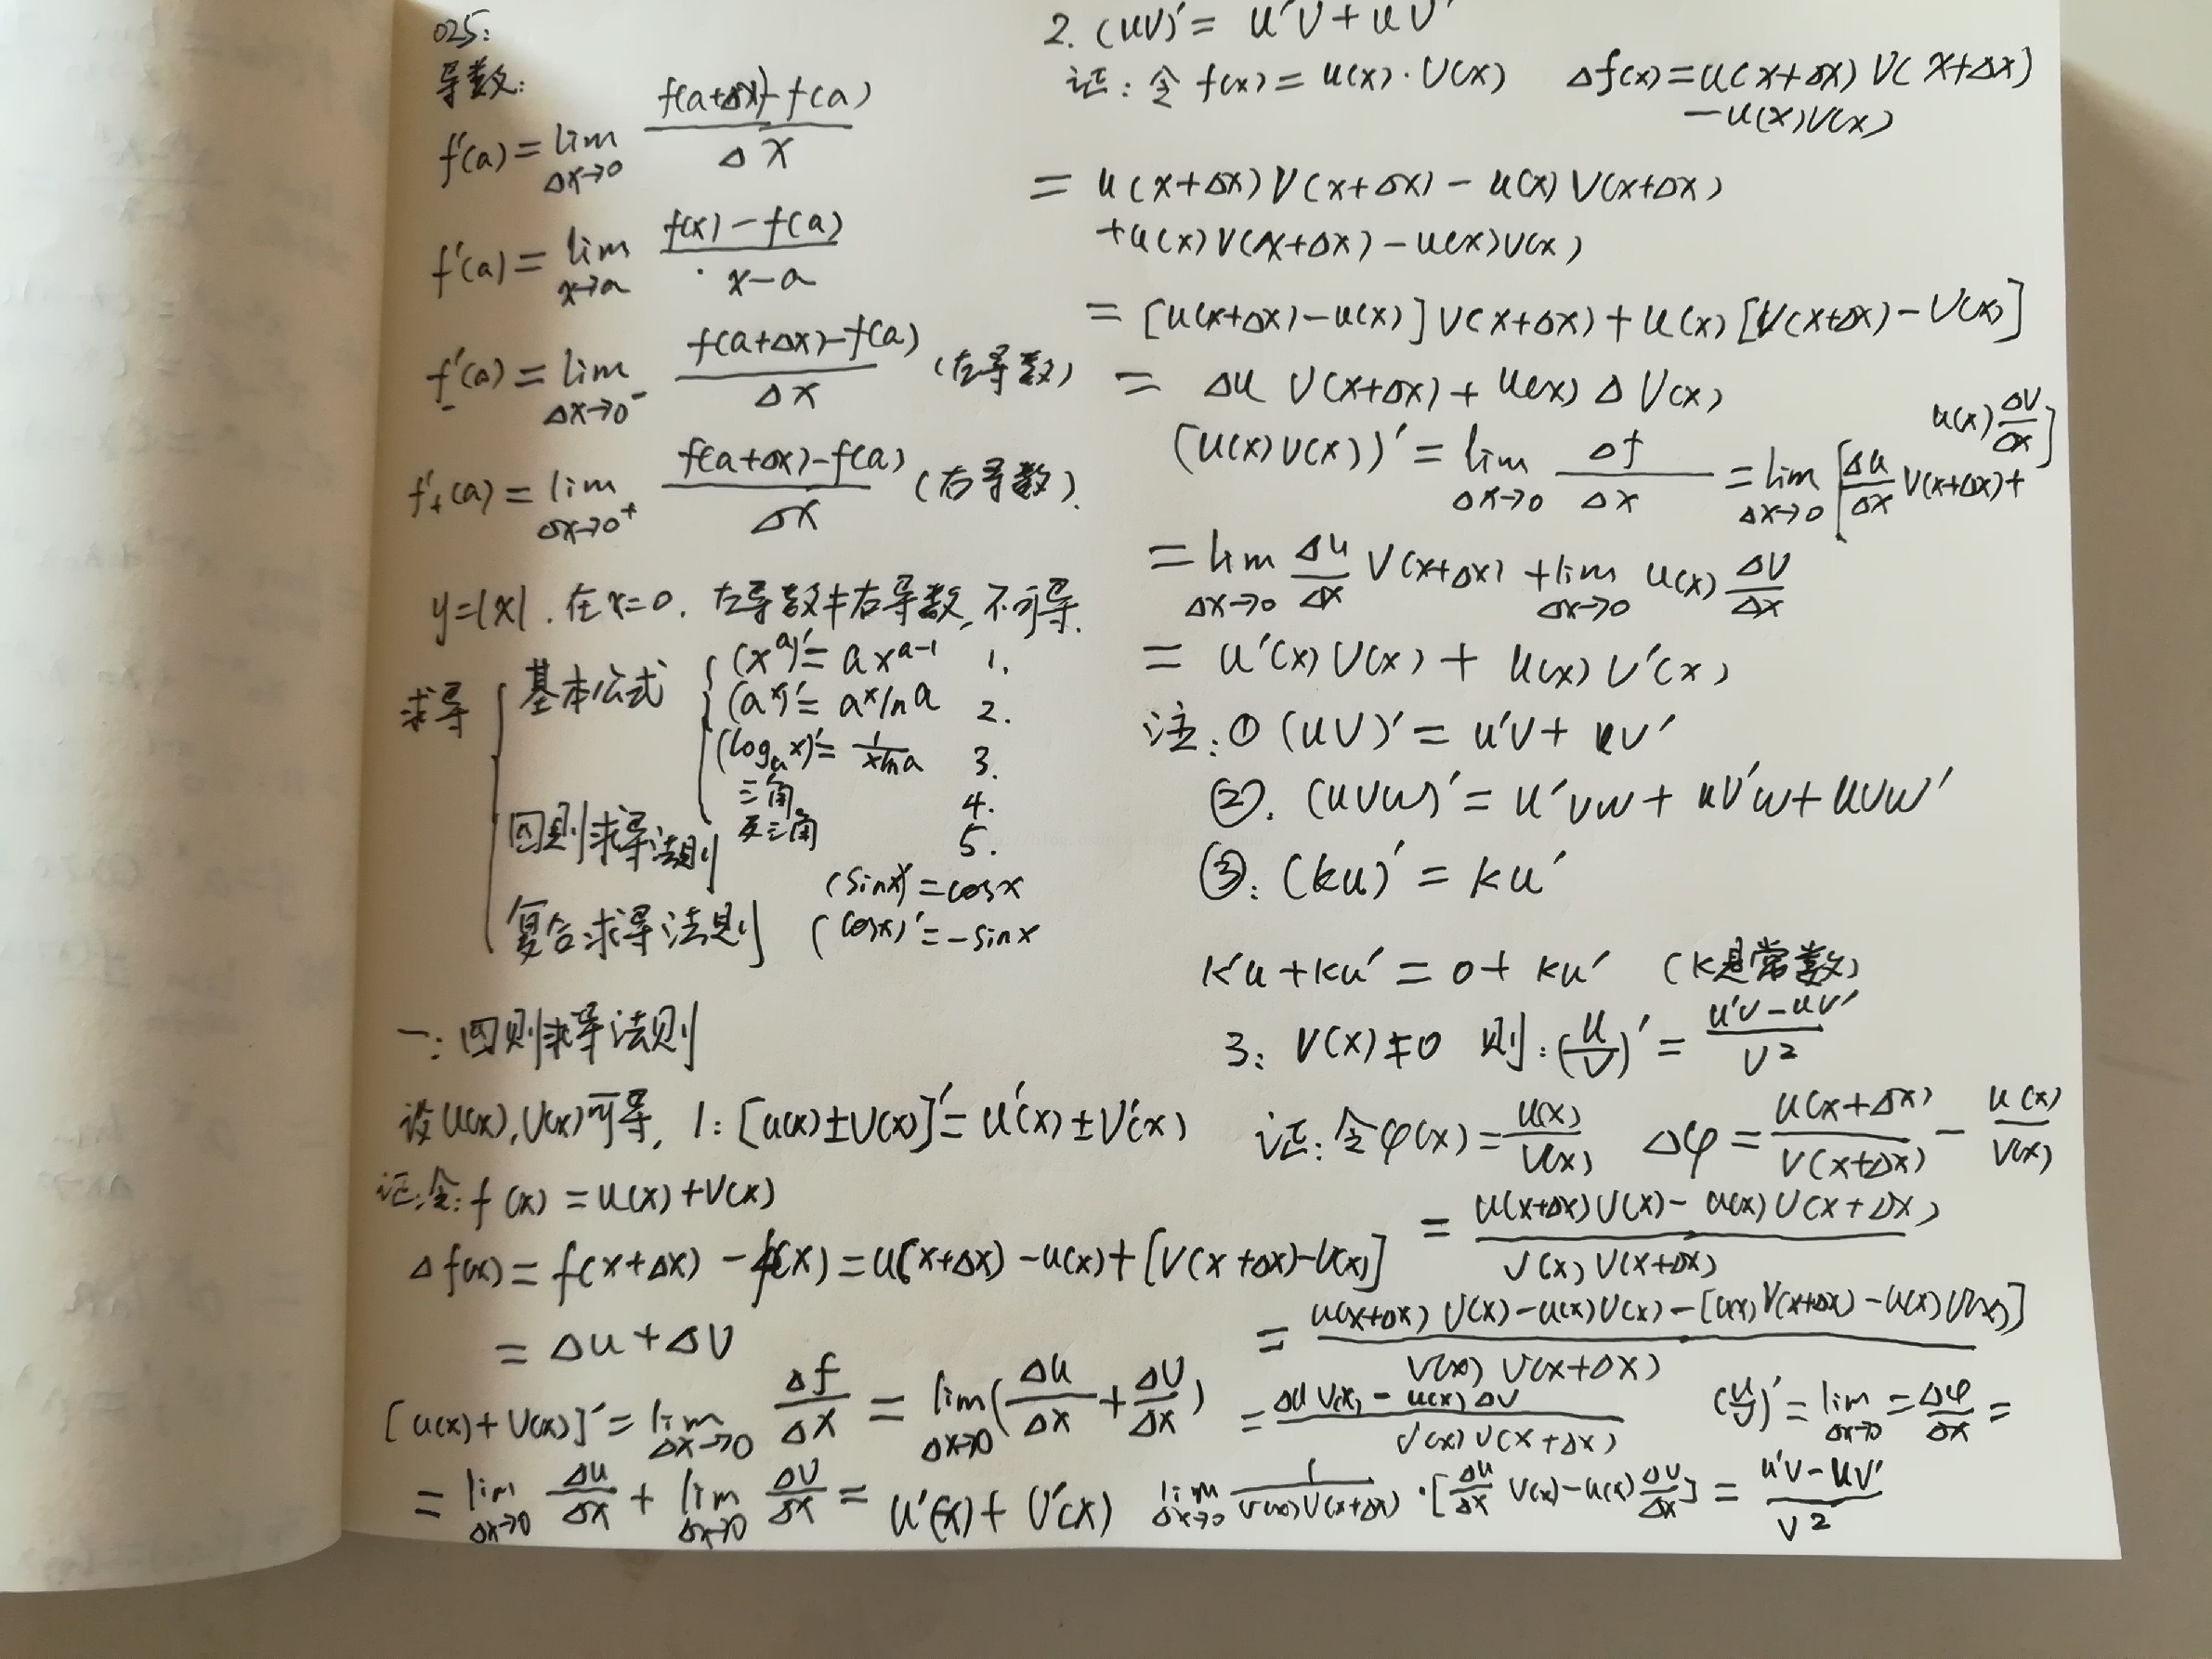 025:
导数:
f'(a) = lim_{Δx→0} \frac{f(a+Δx)-f(a)}{Δx}
f'(a) = lim_{x→a} \frac{f(x)-f(a)}{x-a}
f'_-(a) = lim_{Δx→0^-} \frac{f(a+Δx)-f(a)}{Δx} (左导数)
f'_+(a) = lim_{Δx→0^+} \frac{f(a+Δx)-f(a)}{Δx} (右导数).
y=|x|. 在x=0. 左导数≠右导数, 不可导.
求导
基本公式
(x^a)'= ax^{a-1} 1.
(a^x)'= a^x lna 2.
(log_a x)'= \frac{1}{xlna} 3.
三角 4.
反三角 5.
四则求导法则
(sinx)'=cosx
复合求导法则 (cosx)'=-sinx
一: 四则求导法则
设u(x), v(x)可导, 1: [u(x)±v(x)]'= u'(x)±v'(x)
证:令: f(x) = u(x)+v(x)
Δf(x) = f(x+Δx) - f(x) = u(x+Δx) - u(x)+[v(x+Δx)-v(x)]
= Δu+Δv
[u(x)+v(x)]' = lim_{Δx→0} \frac{Δf}{Δx} = lim_{Δx→0}(\frac{Δu}{Δx}+\frac{Δv}{Δx})
= lim_{Δx→0} \frac{Δu}{Δx} + lim_{Δx→0} \frac{Δv}{Δx} = u'(x)+ v'(x)
2. (uv)' = u'v + uv'
证: 令 f(x) = u(x)·v(x) Δf(x) = u(x+Δx) v(x+Δx)
-u(x)v(x)
= u(x+Δx) v(x+Δx) - u(x) v(x+Δx)
+u(x) v(x+Δx) - u(x)v(x)
= [u(x+Δx)-u(x)] v(x+Δx)+u(x) [v(x+Δx)-v(x)]
= Δu v(x+Δx)+ u(x) Δv(x)
(u(x)v(x))' = lim_{Δx→0} \frac{Δf}{Δx} = lim_{Δx→0} [\frac{Δu}{Δx} v(x+Δx)+ u(x)\frac{Δv}{Δx}]
= lim_{Δx→0} \frac{Δu}{Δx} v(x+Δx) + lim_{Δx→0} u(x) \frac{Δv}{Δx}
= u'(x) v(x) + u(x) v'(x)
注: ① (uv)' = u'v+ uv'
②. (uvw)' = u'vw+ uv'w+ uvw'
③: (ku)' = ku'
k'u+ku' = 0+ ku' (k是常数)
3: v(x)≠0 则: (\frac{u}{v})' = \frac{u'v-uv'}{v^2}
证: 令φ(x) = \frac{u(x)}{v(x)} Δφ = \frac{u(x+Δx)}{v(x+Δx)} - \frac{u(x)}{v(x)}
= \frac{u(x+Δx)v(x)- u(x)v(x+Δx)}{v(x)v(x+Δx)}
= \frac{u(x+Δx)v(x)-u(x)v(x)-[u(x)v(x+Δx)-u(x)v(x)]}{v(x)v(x+Δx)}
= \frac{Δu v(x) - u(x)Δv}{v(x)v(x+Δx)} (\frac{u}{v})' = lim_{Δx→0} = \frac{Δφ}{Δx} =
lim_{Δx→0} \frac{1}{v(x)v(x+Δx)}·[\frac{Δu}{Δx} v(x)-u(x)\frac{Δv}{Δx}] = \frac{u'v-uv'}{v^2}